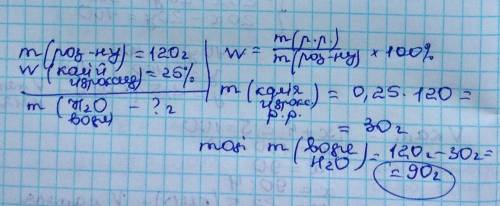 m(роз-ну) = 120г
w(калій гідроксид) = 25%
m(H2O воде) - ? г
w = m(р.р.) / m(роз-ну) × 100%
m(калія гідрокс. р.р.) = 0,25 · 120 =
= 30г
тоді m(воде H2O) = 120г - 30г =
= 90г